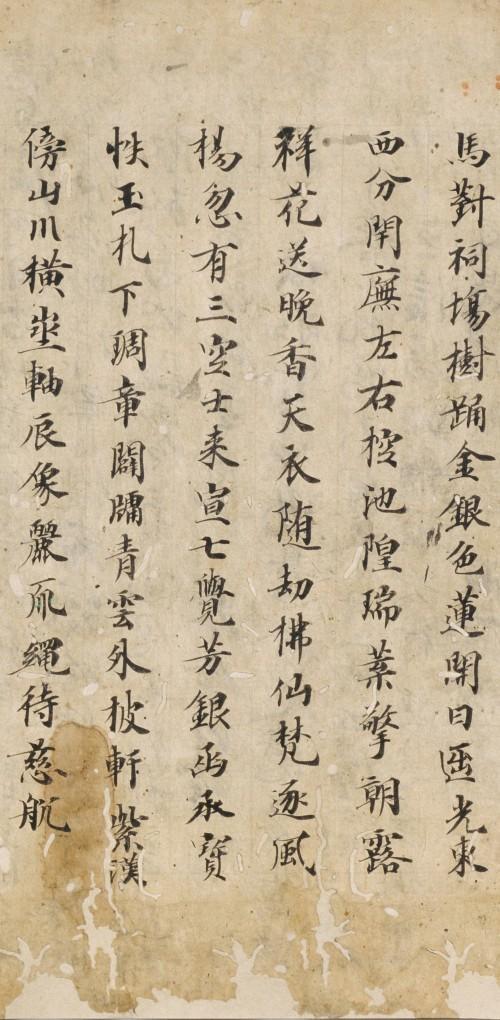 馬對祠塲樹踊金銀色蓮開日匝光東
西分閈廡左右控池隍瑞葉擎朝露
祥花送晚香天衣随劫拂仙梵逐風
楊忽有三空士来宣七覺芳銀函承寶
帙玉札下琱章闢牖青雲外披軒紫漢
傍山川橫坐軸辰象麗 繩待慈航